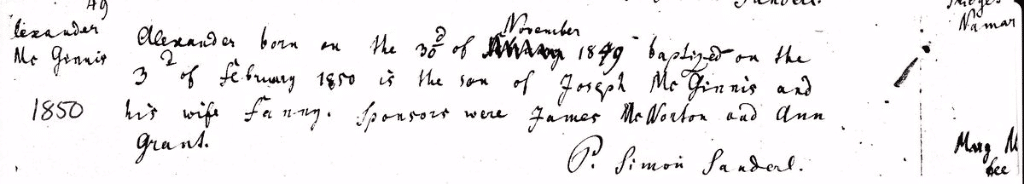 49
Alexander
Mc Ginnis
1850
November
Alexander born on the 30 of 1849 baptized on the
3d of February 1850 is the son of Joseph McGinnis and
his wife Fanny. Sponsors were James McNorton and Ann
Grant.
P. Simon Sanderl.
Namar
Mary M